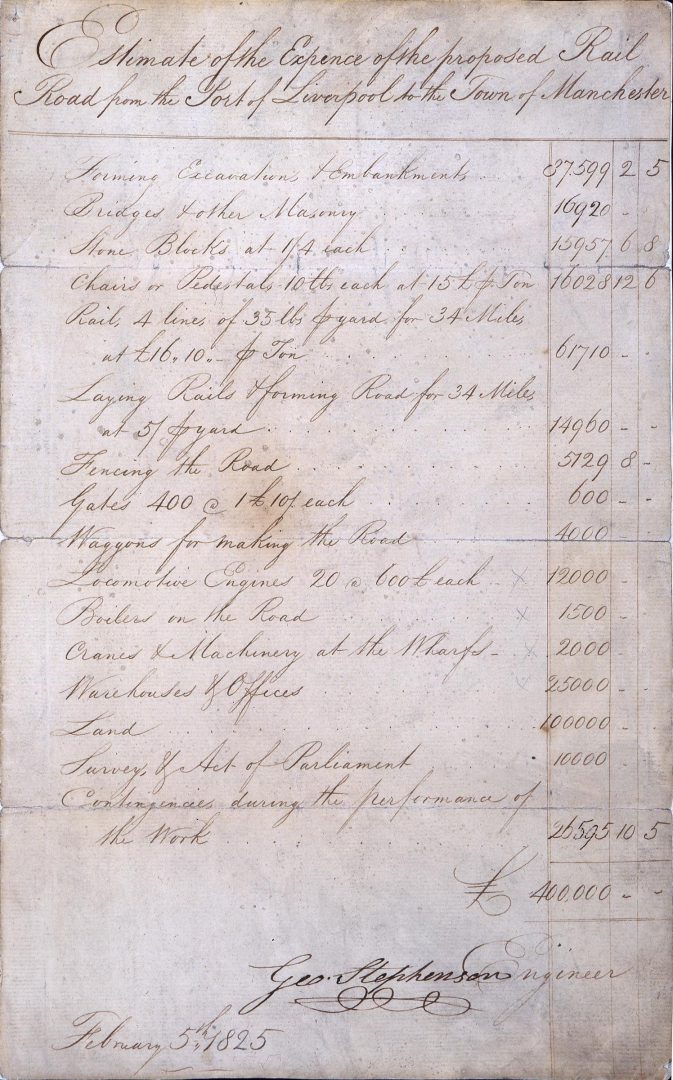 Estimate of the Expence of the proposed Rail
Road from the Port of Liverpool to the Town of Manchester
Forming Excavations & Embankments 87599 2 5
Bridges & other Masonry 16920 -
Stone Blocks at 1/4 each 15957 6 8
Chairs or Pedestals 10 lbs each at 15£ ℘ Ton 16028 12 6
Rails 4 lines of 35 lbs ℘ yard for 34 Miles
at £16,,10,,- ℘ Ton 61710 - -
Laying Rails & forming Road for 34 Miles
at 5/ ℘ yard 14960 - -
Fencing the Road 5129 8 -
Gates 400 @ 1£ 10/ each 600 - -
Waggons for making the Road 4000 - -
Locomotive Engines 20 @ 600£ each x 12000 -
Boilers on the Road x 1500 -
Cranes & Machinery at the Wharfs - x 2000 -
Warehouses & Offices 25000 - -
Land 100000 - -
Survey, & Act of Parliament 10000 - -
Contingencies during the performance of
the Work 26595 10 5
£ 400,000 - -
Geo. Stephenson Engineer
February 5th 1825